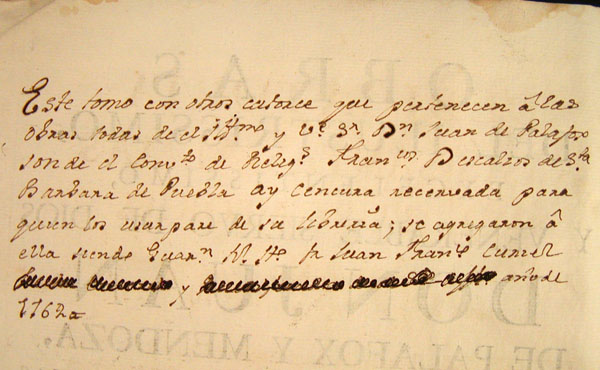 Este tomo con otros catorce que pertenecen â las
obras todas de el Illmo y Ve. Sr. Dn Juan de Palafox
son de el Convto de Religs Francos Descalsos de Sta
Barbara de Puebla ay cencura recervada para
quien los usurpare de su libreria; se agregaron â
ella siendo Guarn N. H. fr Juan Frano
y año de
1762a